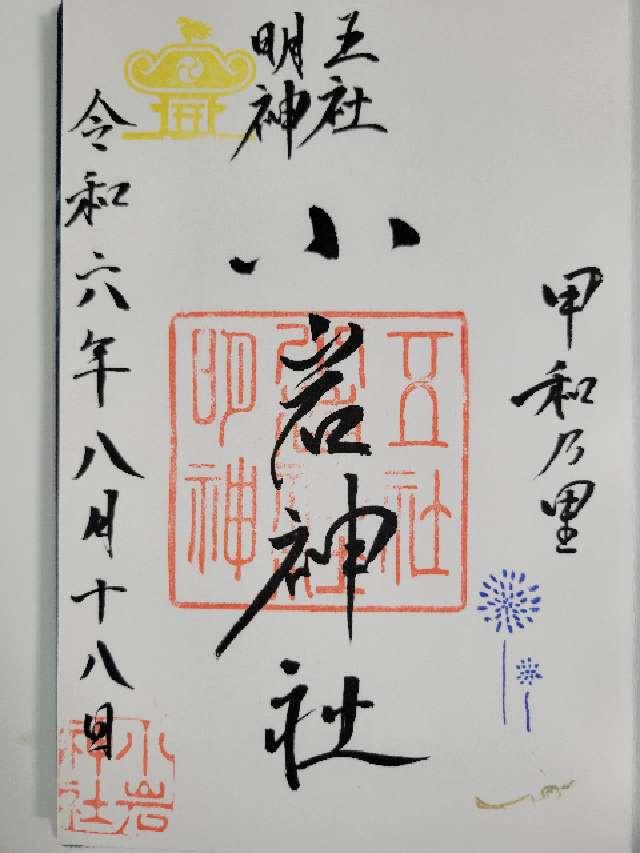 甲和乃里
五社
明神
小岩神社
令和六年八月十八日
五社
明神
小岩
神社